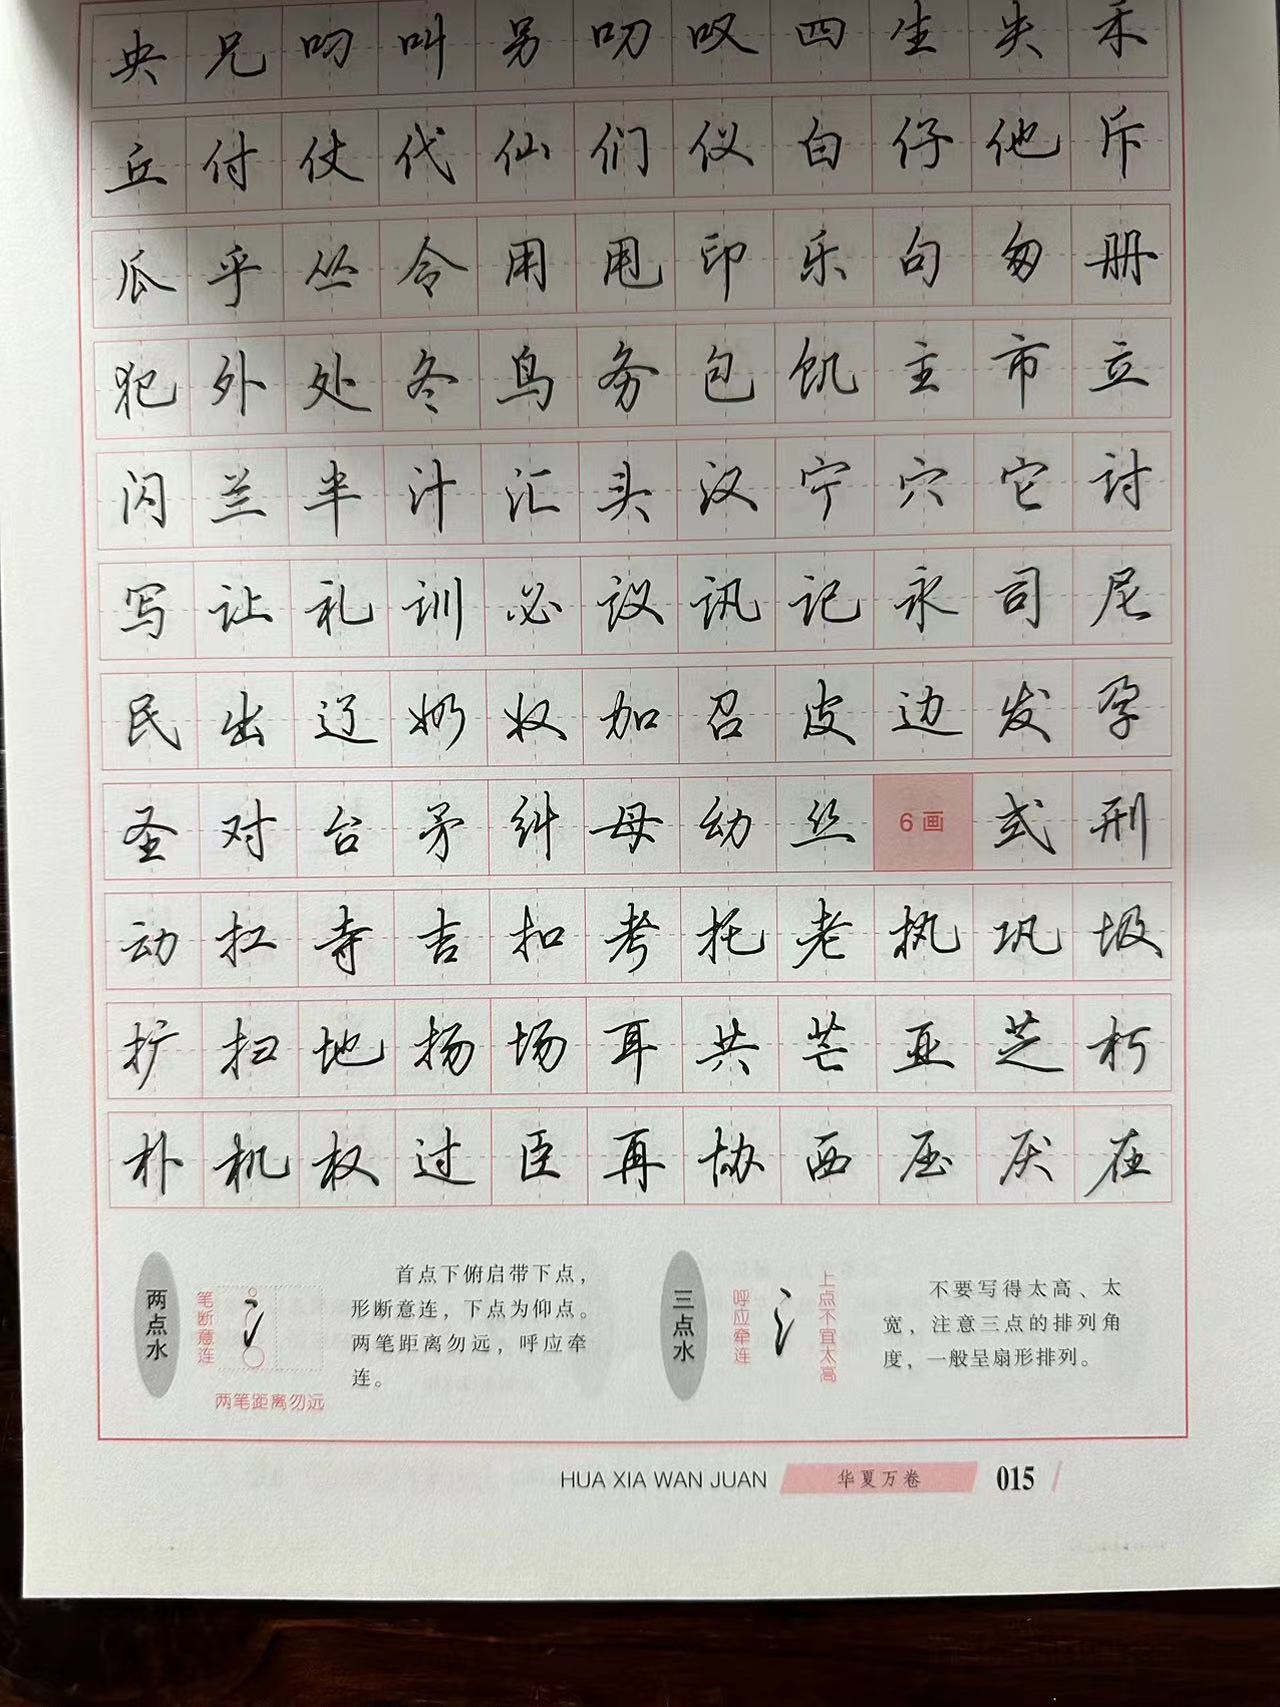 央兄叨叫另叨叹四生失禾
丘付仗代仙们仪白仔他斥
瓜乎丛令用甩印乐句匆册
犯外处冬鸟务包饥主市立
闪兰半汁汇头汉宁穴它讨
写让礼训必议讯记永司尼
民出辽奶奴加召皮边发孕
圣对台矛纠母幼丝6画式刑
动扛寺吉扣考托老执巩圾
扩扫地扬场耳共芒亚芝朽
朴机权过臣再协西压厌在
两点水
笔断意连
两笔距离勿远
首点下俯启带下点，
形断意连，下点为仰点。
两笔距离勿远，呼应牵
连。
三点水
呼应牵连
上点不宜太高
不要写得太高、太
宽，注意三点的排列角
度，一般呈扇形排列。
HUA XIA WAN JUAN 华夏万卷 015